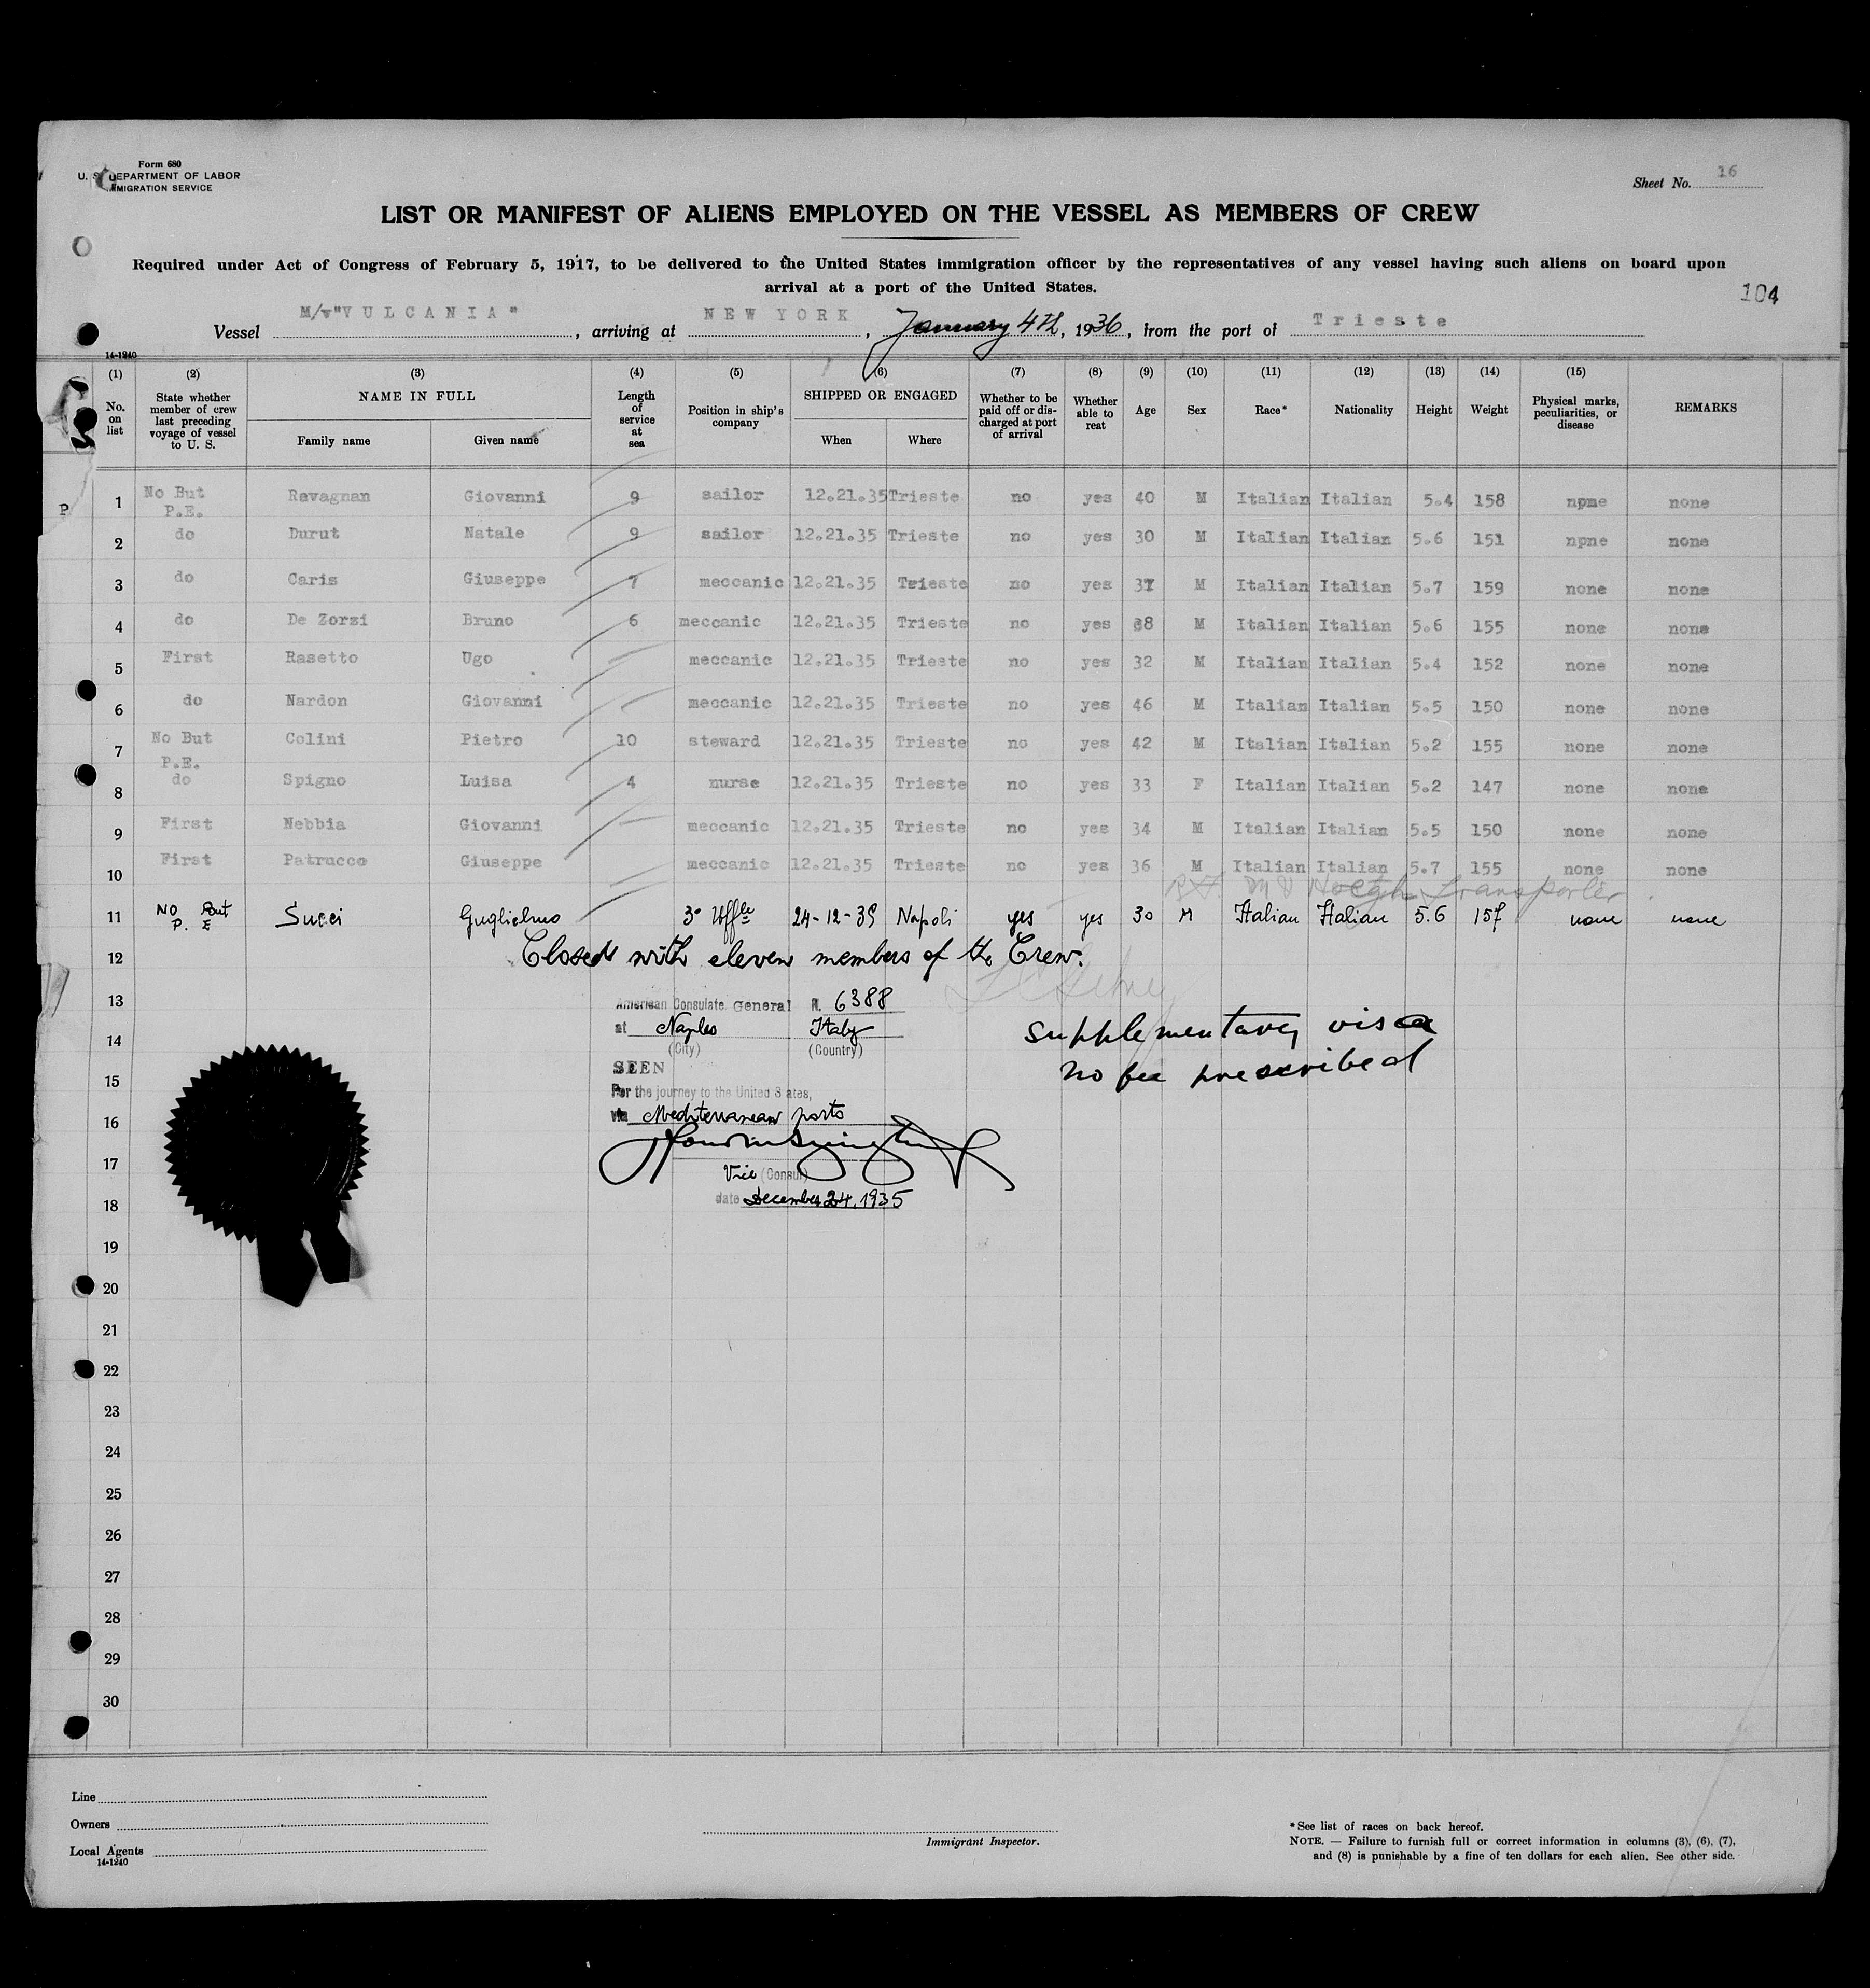 Form 680
U. S. DEPARTMENT OF LABOR
IMMIGRATION SERVICE
Sheet No. 16
LIST OR MANIFEST OF ALIENS EMPLOYED ON THE VESSEL AS MEMBERS OF CREW
Required under Act of Congress of February 5, 1917, to be delivered to the United States immigration officer by the representatives of any vessel having such aliens on board upon
arrival at a port of the United States.
104
Vessel M/v "VULCANIA", arriving at NEW YORK, January 4th, 1936, from the port of Trieste
14-1240
(1) (2) (3) (4) (5) (6) (7) (8) (9) (10) (11) (12) (13) (14) (15)
No. on list | State whether member of crew last preceding voyage of vessel to U. S. | NAME IN FULL Family name Given name | Length of service at sea | Position in ship's company | SHIPPED OR ENGAGED When Where | Whether to be paid off or discharged at port of arrival | Whether able to reat | Age | Sex | Race* | Nationality | Height | Weight | Physical marks, peculiarities, or disease | REMARKS
P 1 No But P.E. Ravagnan Giovanni 9 sailor 12.21.35 Trieste no yes 40 M Italian Italian 5.4 158 npne none
2 do Durut Natale 9 sailor 12.21.35 Trieste no yes 30 M Italian Italian 5.6 151 npne none
3 do Caris Giuseppe 7 meccanic 12.21.35 Trieste no yes 37 M Italian Italian 5.7 159 none none
4 do De Zorzi Bruno 6 meccanic 12.21.35 Trieste no yes 38 M Italian Italian 5.6 155 none none
5 First Rasetto Ugo meccanic 12.21.35 Trieste no yes 32 M Italian Italian 5.4 152 none none
6 do Nardon Giovanni meccanic 12.21.35 Trieste no yes 46 M Italian Italian 5.5 150 none none
7 No But P.E. Colini Pietro 10 steward 12.21.35 Trieste no yes 42 M Italian Italian 5.2 155 none none
8 do Spigno Luisa 4 nurse 12.21.35 Trieste no yes 33 F Italian Italian 5.2 147 none none
9 First Nebbia Giovanni meccanic 12.21.35 Trieste no yes 34 M Italian Italian 5.5 150 none none
10 First Patrucco Giuseppe meccanic 12.21.35 Trieste no yes 36 M Italian Italian 5.7 155 none none
Hoegh Transporter
11 NO But P. E Succi Guglielmo 3° Uffle 24-12-35 Napoli yes yes 30 M Italian Italian 5.6 157 none none
12 Closed with eleven members of the Crew.
13 American Consulate General N. 6388
at Naples Italy
14 (City) (Country)
supplementary visa
no fee prescribed
SEEN
15 For the journey to the United States,
16 via Mediterranean ports
17 Vice (Consul)
18 date December 24, 1935
19
20
21
22
23
24
25
26
27
28
29
30
Line
Owners
Local Agents
14-1240
Immigrant Inspector.
*See list of races on back hereof.
NOTE. — Failure to furnish full or correct information in columns (3), (6), (7),
and (8) is punishable by a fine of ten dollars for each alien. See other side.